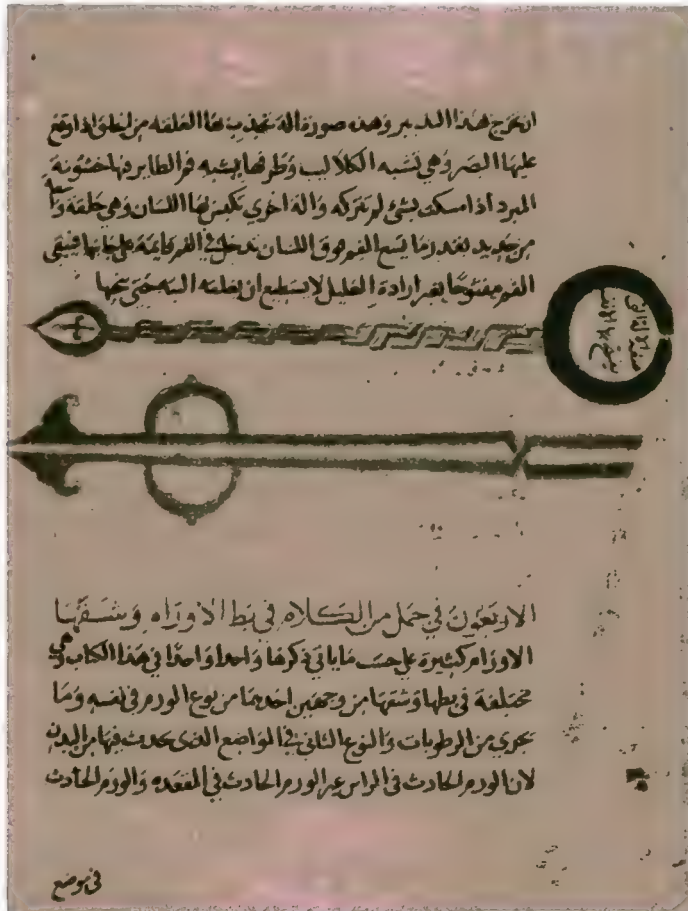 ان تخرج بهذا التدبير وهذه صورة الة تجذب بها العلقه من الحلق اذا وقع
عليها البصر وهي تشبه الكلاليب وطرفها يشبه فم الطاير فيها خشونة
المبرد اذا امسكت بشئ لم تتركه والة اخري تكبس بها اللسان وهي حلقه
من حديد بقدر ما يسع الفم فوق اللسان تدخل في الفم قايمة على جانبها فيبقى
الفم مفتوحًا بغير ارادة العليل لا يستطيع ان يغلقه البته حتى ينحها
صفة الالة التي
يفتح بها الفم
الاربعون في جمل من الكلام في بط الاورام وشقها
الاورام كثيرة على حسب ما ياتي ذكرها واحدا واحدًا في هذا الكتاب وهي
مختلفة في بطها وشقها من وجهين احدهما من نوع الورم في نفسه وما
تحوي من الرطوبات والنوع الثاني في المواضع الذى تحدث فيها من البدن
لان الورم الحادث في الراس غير الورم الحادث في المقعده والورم الحادث
في موضع